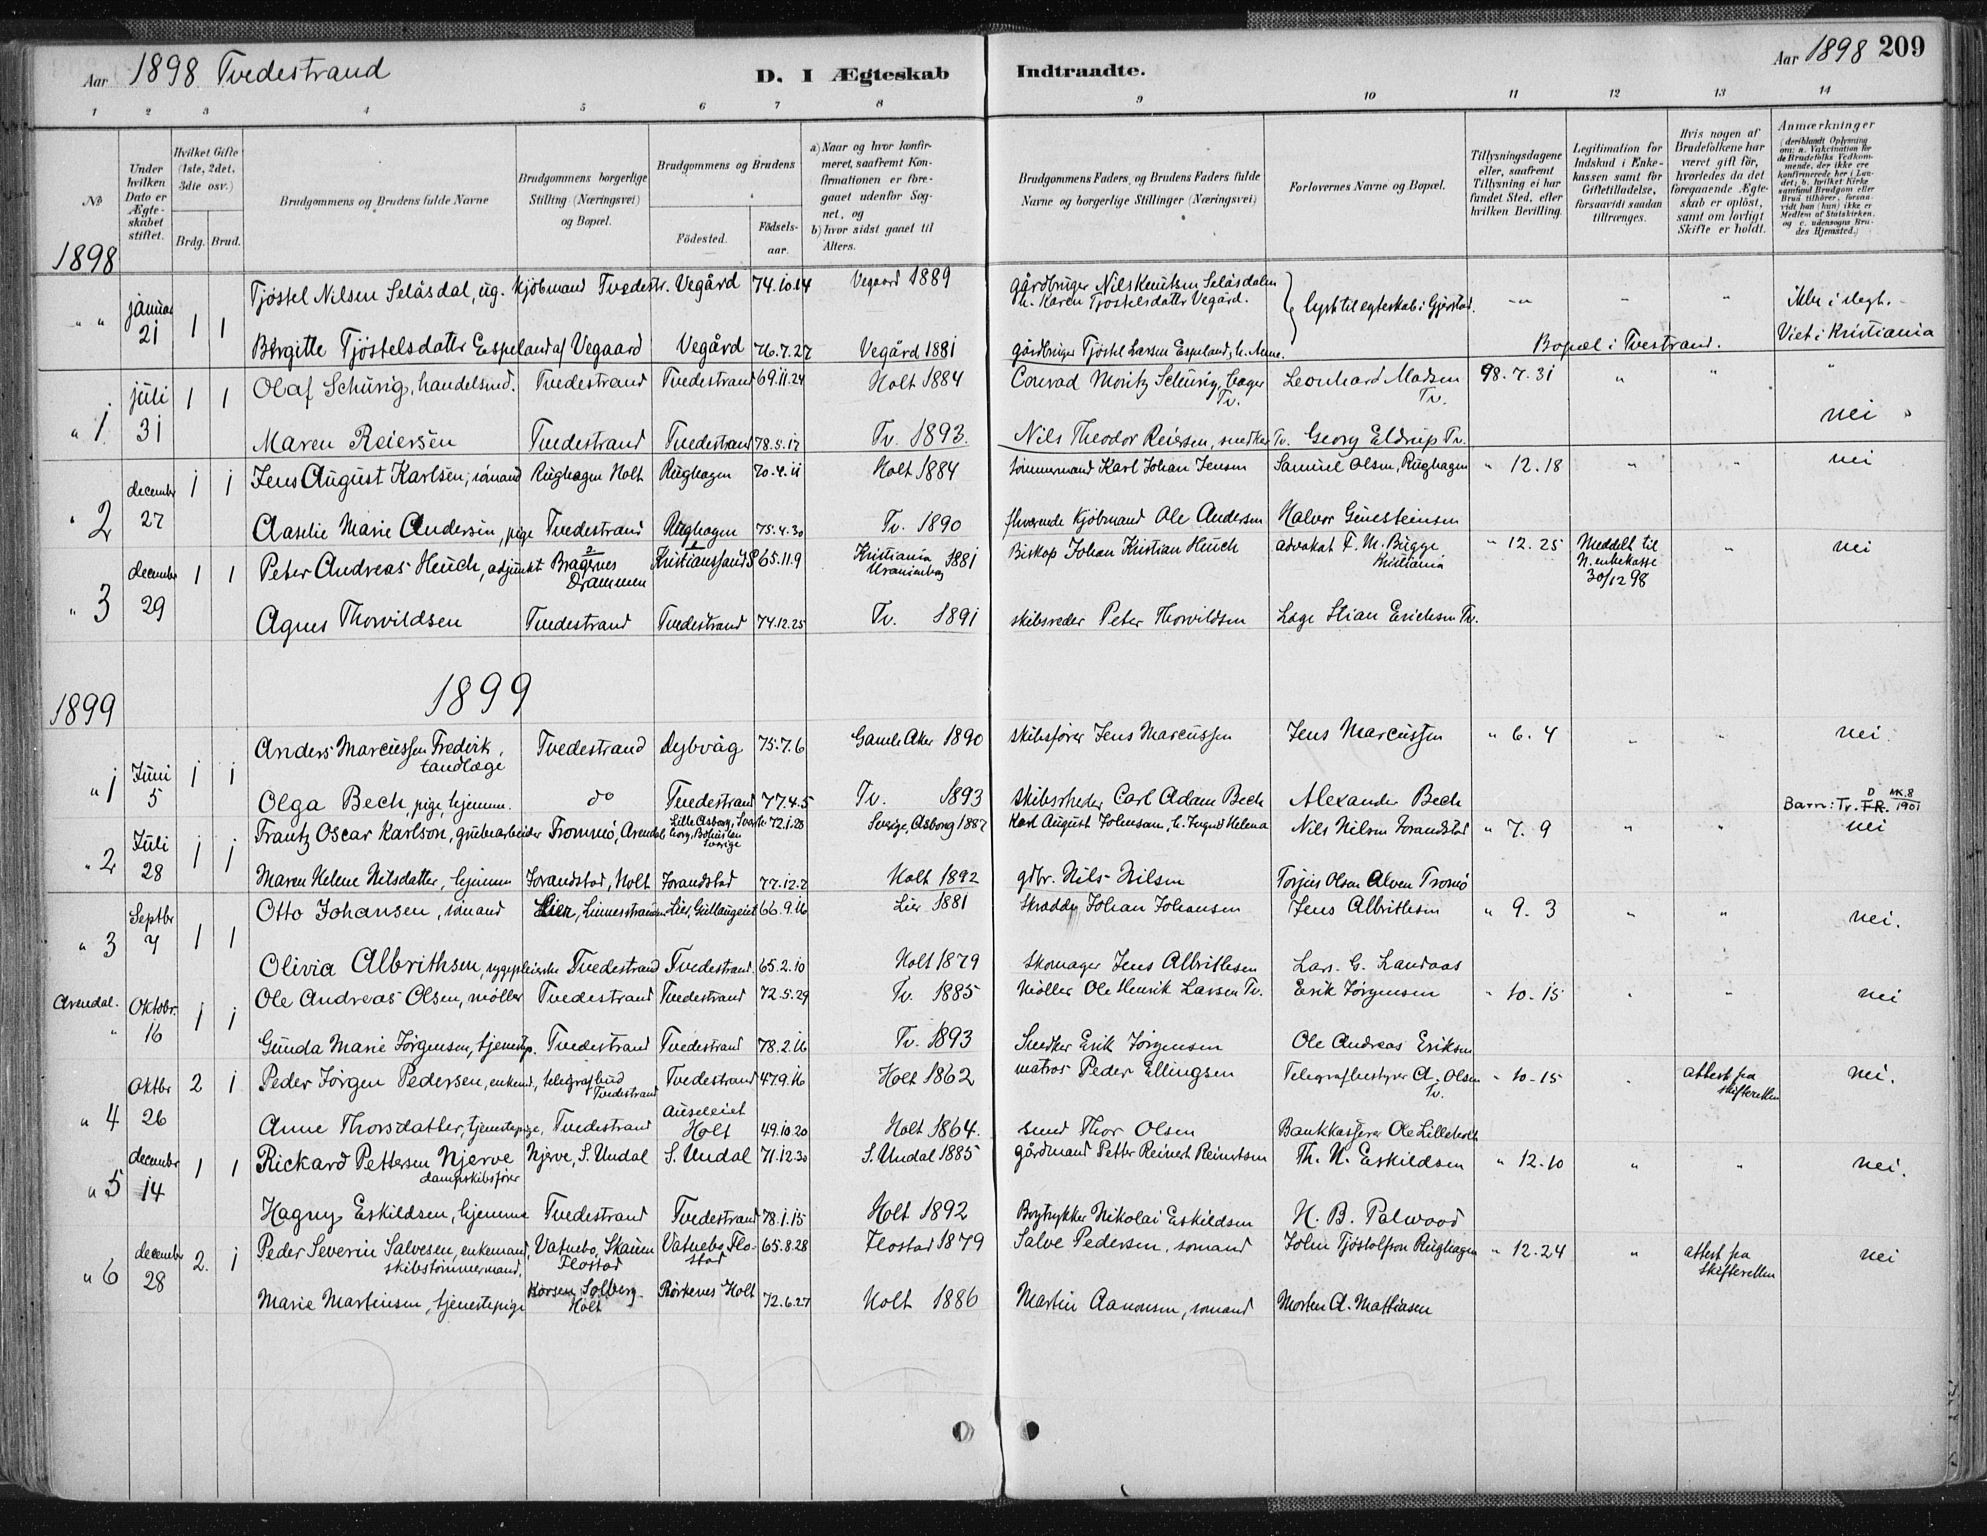 Aar 1898 Tvedestrand D. I Ægteskab Indtraadte. Aar 1898 209
1 2 3 4 5 6 7 8 9 10 11 12 13 14
No
Under hvilken Dato er Ægteskabet stiftet.
Hvilket Gifte (1ste, 2det, 3die osv.)
Brdg. Brud.
Brudgommens og Brudens fulde Navne
Brudgommens borgerlige Stilling (Næringsvei) og Bopæl.
Brudgommens og Brudens
Födested. Födselsaar.
a) Naar og hvor konfirmeret, saafremt Konfirmationen er foregaaet udenfor Sognet, og
b) hvor sidst gaaet til Alters.
Brudgommens Faders, og Brudens Faders fulde Navne og borgerlige Stillinger (Næringsvei)
Forlovernes Navne og Bopæl.
Tillysningsdagene eller, saafremt Tillysning ei har fundet Sted, efter hvilken Bevilling.
Legitimation for Indskud i Enkekassen samt for Giftetilladelse, forsaavidt saadan tiltrænges.
Hvis nogen af Brudefolkene har været gift för, hvorledes da det foregaaende Ægteskab er oplöst, samt om lovligt Skifte er holdt.
Anmærkninger (deriblandt Oplysning om: a. Vakcination for de Brudefolks Vedkommende, der ikke ere konfirmerede her i Landet; b. hvilket Kirkesamfund Brudgom eller Brud tilhörer, forsaavidt han (hun) ikke er Medlem af Statskirken, og c. udensogns Brudes Hjemsted.)
1898
" " januar 21 1 1 Tjöstel Nilsen Selåsdal, ug. kjöbmand Tvedestr. Vegård 74.10.14 Vegaard 1889 gårdbruger Nils Knutsen Selåsdalen h. Karen Tjöstelsdatter Vegård. lyst til egteskab i Gjerstad. " " " " ikke i slegt.
Birgitte Tjöstelsdatter Espeland af Vegaard Vegård 76.7.27 Vegård 1881 gårdbruger Tjöstel Larsen Espeland, h. Anne. Bopæl i Tvestrand. Viet i Kristiania
" 1 juli 31 1 1 Olaf Schürig, handelsmd. Tvedestrand Tvedestrand 69.11.24 Holt 1884 Conrad Moritz Schürig, bager Tv. Leonhard Madsen Tv. 98.7.31 " " "
Maren Reiersen Tvedestrand Tvedestrand 78.5.17 Tv. 1893. Nils Theodor Reiersen, snedker Tv. Georg Eldrup Tv. nei "
" 2 decembr 27 1 1 Jens August Karlsen, sömand Rughagen Holt Rughagen 70.4.11 Holt 1884 tömmermand Karl Johan Jensen Samuel Olsen, Rughagen " 12.18 " " nei
Aaselie Marie Andersen, pige Tvedestrand Rughagen 75.4.30 Tv. 1890 fhværende kjöbmand Ole Andersen Halvor Geuesteinsen
" 3 decembr 29 1 1 Peter Andreas Heuch, adjunkt Bragernes Drammen Kristianssand S 65.11.9 Kristiania Uranienborg 1881 Biskop Johan Kristian Heuch advokat F. M. Bugge, Kristiania " 12.25 Meddelt til N. enkekasse 30/12 98 " nei
Agnes Thorvildsen Tvedestrand Tvedestrand 74.12.25 Tv. 1891 skibsreder Peter Thorvildsen Læge Stian Erichsen Tv.
1899
1899
" 1 Juni 5 1 1 Anders Marcussen Frederik, tandlæge Tvedestrand Dybvåg 75.7.6 Gamle Aker 1890 skibsförer Jens Marcussen Jens Marcussen " 6.4 " " nei.
Olga Bech, pige, hjemme. do Tvedestrand 77.4.5 Tv. 1893 skibsrheder Carl Adam Bech Alexander Bech Barn: Tv. F.R. D MK.8 1901
" 2 Juli 28 1 1 Frantz Oscar Karlson, grubearbeider Tromö, Arendal Lille Asborg, Bohuslen Sverige 72.1.28 Sverige, Asborg 1887 Karl August Johnsson, h. Ingrid Helena Nils Nilsen Jorandstad " 7.9 " " nei
Maren Helene Nilsdatter, hjemme Jorandstad, Holt Jorandstad 77.12.2 Holt 1892 gdbr. Nils Nilsen Torjus Olsen Alven Tromö
" 3 Septbr 7 1 1 Otto Johansen, sömand Lier, Linnestranden Lier, Gullaugeiet 66.9.16 Lier 1881 Skrædder Johan Johansen Jens Albrithsen " 9.3 " " nei.
Olivia Albrithsen, sygepleierske Tvedestrand Tvedestrand 65.2.10 Holt 1879 Skomager Jens Albrithsen Lars G. Landaas
Arendal. " Oktobr. 16 1 1 Ole Andreas Olsen, möller Tvedestrand Tvedestrand 72.5.29 Tv. 1885 Möller Ole Henrik Larsen Tv. Erik Jörgensen " 10-15 " " nei
Gunda Marie Jörgensen, tjenestep. Tvedestrand Tvedestrand 78.2.16 Tv. 1893 Snedker Erik Jörgensen Ole Andreas Eriksen
" 4 Oktbr 26 2 1 Peder Jörgen Pedersen, enkemd, telegrafbud Tvedestrand Tvedestrand 47.9.16 Holt 1862 matros Peder Ellingsen Telegrafbestyrer A. Olsen Tv. " 10-15 " attest fra skifteretten nei.
Anne Thorsdatter, tjenestepige, Tvedestrand Auseleiet Holt 49.10.20 Holt 1864. smed Thor Olsen Bankkasserer Ole Lilleholt
" 5 decembr 14 1 1 Rickard Pettersen Njerve dampskibsförer Njerve, S. Undal S. Undal 71.12.30 S. Undal 1885 gårdmand Petter Reinert Reinertsen Th. N. Eskildsen " 12.10 " " nei.
Hagny Eskildsen, hjemme Tvedestrand Tvedestrand 78.1.15 Holt 1892 Bogtrykker Nikolai Eskildsen H. B. Palwood
" 6 decembr 28 2. 1 Peder Severin Salvesen, enkemand, skibstömmermand, Vatnebo, Skauen Flostad Vatnebo, Flostad 65.8.28 Flostad 1879 Salve Pedersen, sömand John Tjöstolfson Rughagen " 12.24 " attest fra Skifteretten nei
Marie Martinsen, tjenestepige Korsen Solberg Holt Rörkenes Holt 72.6.27 Holt 1886 Martin Aanonsen, sömand Morten A. Mattiasen